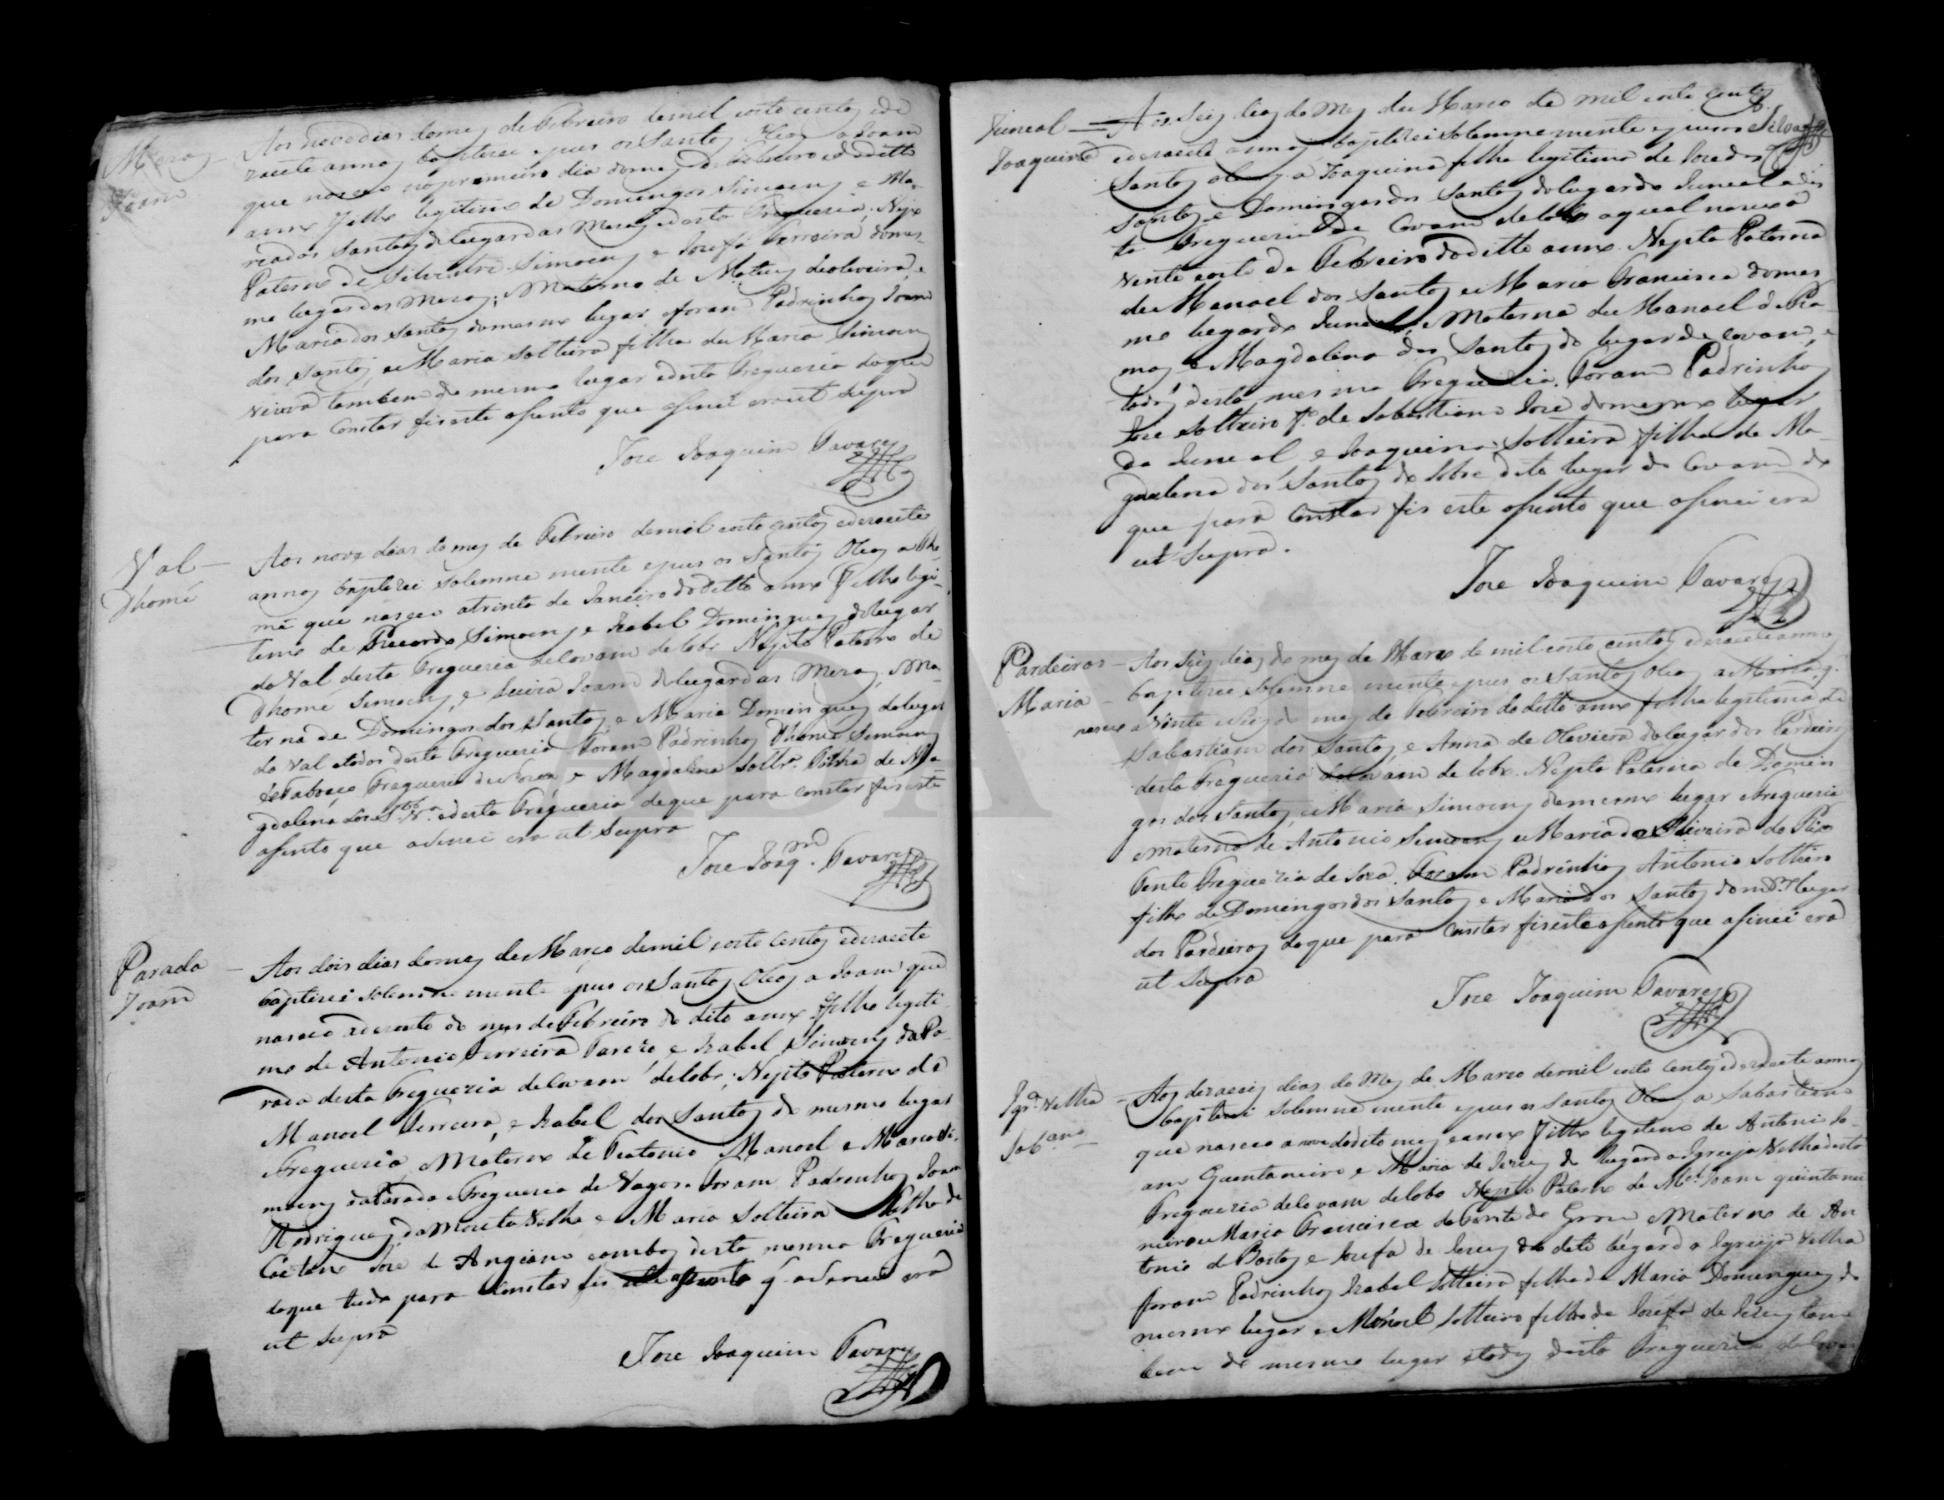 Mezas
Joam
Aos nove dias do mez de Febreiro de mil oito centos e de
zacete annos baptizei e pus os Santos Oleos a Joam
que nasceo no premeiro dia do mez de Febreiro do ditto
anno filho legitimo de Domingos Simoens e Ma-
ria dos Santos do lugar das Mezas desta Freguezia; Nepto
Paterno de Silvestre Simoens e Josefa Ferreira do mes-
mo lugar das Mezas; Materno de de Oliveira e
Maria dos Santos do mesmo lugar foram Padrinhos Joam
dos Santos, e Maria Solteira filha de Maria Simoens
viuva tambem do mesmo lugar e desta Freguezia do que
para constar fis este asento que asinei era ut supra
Joze Joaquim Tavares
Val
Thomé
Aos nove dias do mez de Febreiro de mil oito centos e dezacete
annos baptizei solemne mente e pus os Santos Oleos a Tho
mé que nasceo a trinta de Janeiro do ditto anno Filho legi-
timo de Ricardo Simoens, e Izabel Domingues do lugar
do Val desta Freguezia de Covam de lobo Nepto Paterno de
Thomé Simoens, e Luiza Joam do lugar das Mezas, Ma-
terno de Domingos dos Santos, e Maria Domingues do lugar
do Val e todos desta Freguezia Foram Padrinhos Thomé Simoens
de Freguezia de Soza e Magdalena Soltr.ª Filha de Ma-
gdalena dos desta Freguezia de que para constar fis este
asento que asinei era ut supra
Joze Joaq.m Tavares
Parada
Joam
Aos dois dias do mez de Março de mil oito centos e dezacete
baptizei solemne mente e pus os Santos Oleos a Joam que
nasceo a dezoito do mes de Febreiro do dito anno filho legiti-
mo de Antonio Ferreira e Izabel Simoens da Pa-
rada desta Freguezia de Covam de lobo; Nepto Paterno de
Manoel Ferreira, e Izabel dos Santos do mesmo lugar
e Freguezia Materno de Manoel e Maria Si-
moens da Parada e Freguezia de Vagos. Foram Padrinhos Joam
Rodrigues da Mouta Velha e Maria Solteira Filha de
Caetano Joze de Angiam e ambos desta mesma Freguezia
do que tudo para constar fis este asento q asinei era
ut supra
Joze Joaquim Tavares
Juncal
Joaquina
Aos Seis dias do Mez de Marco de mil oito centos
e dezacete annos baptizei solemne mente e pus os
Santos oleos a Joaquina filha legitima de Joze dos
Santos e Domingas dos Santos do lugar do Juncal e des
ta Freguezia de Covam de lobo a qual nasceo a
vinte oito de Febreiro do ditto anno. Nepta Paterna
de Manoel dos Santos e Maria Francisca do mes
mo lugar do Juncal, Materna de Manoel de
e Magdalena dos Santos do lugar de Covam, e
todos desta mesma Freguezia. Foram Padrinhos
Joze Solteiro f.º de Sabastiam Joze do mesmo lugar
do Juncal e Joaquina Solteira filha de Ma-
gdalena dos Santos do sobre dito lugar do Covam do
que para constar fis este asento que asinei era
ut supra.
Joze Joaquim Tavares
Pardeiros
Maria
Aos Seis dias do mez de Marco de mil oito centos e dezacete annos
baptizei solemne mente e pus os Santos Oleos a Maria q.
nasceo a vinte e seis do mez de Febreiro do ditto anno filha legitima de
Sabastiam dos Santos, e Anna de Oliveira do lugar dos Pardeiros
desta Freguezia de Covam de lobo. Nepta Paterna de Domin
gos dos Santos, e Maria Simoens do mesmo lugar e Freguezia
Materna de Antonio Simoens e Maria de Oliveira do Rio
Tinto Freguezia de Soza. Foram Padrinhos Antonio Solteiro
filho de Domingos dos Santos e Maria dos Santos do m.º lugar
dos Pardeiros do que para constar fis este asento que asinei era
ut supra
Joze Joaquim Tavares
Igr.ª Velha
Sab.am
Aos dezaceis dias do Mez de Marco de mil oito centos e dezacete annos
baptizei solemne mente e pus os Santos Oleos a Sabastiam
que nasceo a nove do dito mez e anno Filho legitimo de Antonio Jo-
am Quintaneiro e Maria de Jezus do lugar da Igreja Velha desta
Freguezia de Covam de lobo Nepto Paterno de M.el Joam quintanei
neiro e Maria Francisca da Fonte do Materno de An
tonio de Bastos e Josefa de Jezus do dito lugar da Igreja Velha
foram Padrinhos Izabel Solteira filha de Maria Domingues do
mesmo lugar e Manoel Solteiro filho de Josefa de Jezus tam
bem do mesmo lugar e todos desta Freguezia de Covam